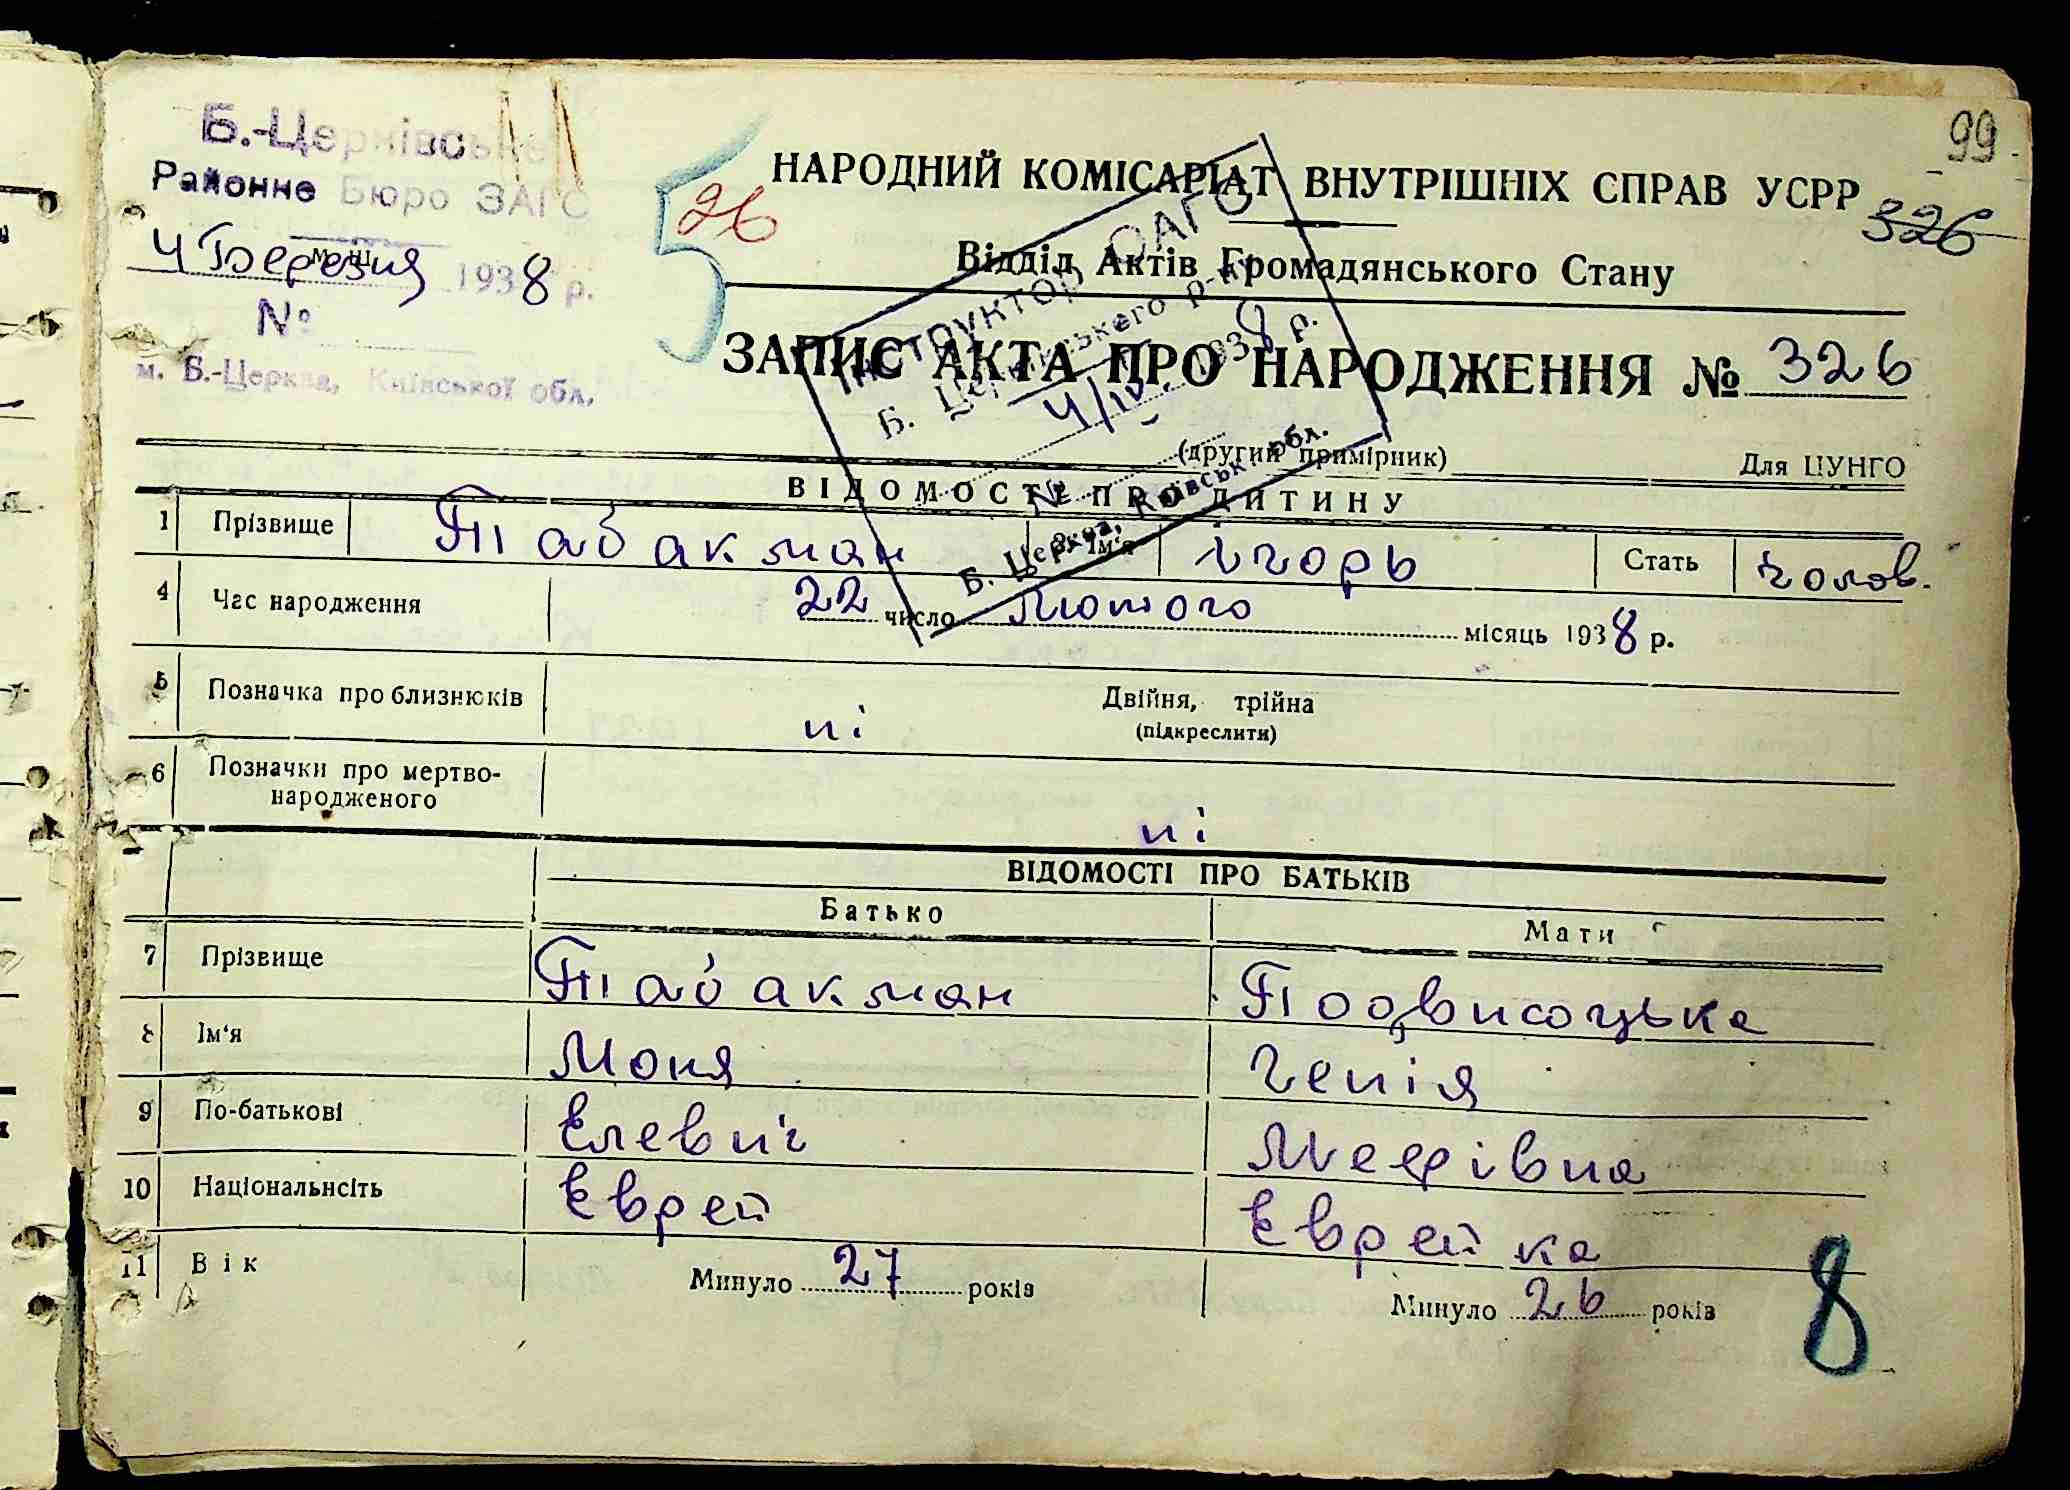 99
Б.-Церківське
Районне Бюро ЗАГС
4 Березня 1938 р.
№
м. Б.-Церква, Київської обл.
5
26
НАРОДНИЙ КОМІСАРІАТ ВНУТРІШНІХ СПРАВ УСРР
326
Відділ Актів Громадянського Стану
ЗАПИС АКТА ПРО НАРОДЖЕННЯ № 326
(другий примірник)
Для ЦУНГО
Інструктор ОАГС
Б. Церківського р-ну
4/IV 1938 р.
№
Б. Церква, Київськ. обл.
ВІДОМОСТІ ПРО ДИТИНУ
1 Прізвище Табакман 3 Ім'я Ігорь Стать чолов.
4 Час народження 22 число Лютого місяць 1938 р.
5 Позначка про близнюків ні Двійня, трійна
(підкреслити)
6 Позначки про мертво-
народженого
ні
ВІДОМОСТІ ПРО БАТЬКІВ
Батько Мати
7 Прізвище Табакман Подвисоцька
8 Ім'я Моня Генія
9 По-батькові Елевич Меерівна
10 Національнсіть Єврей Єврейка
11 Вік Минуло 27 років Минуло 26 років
8